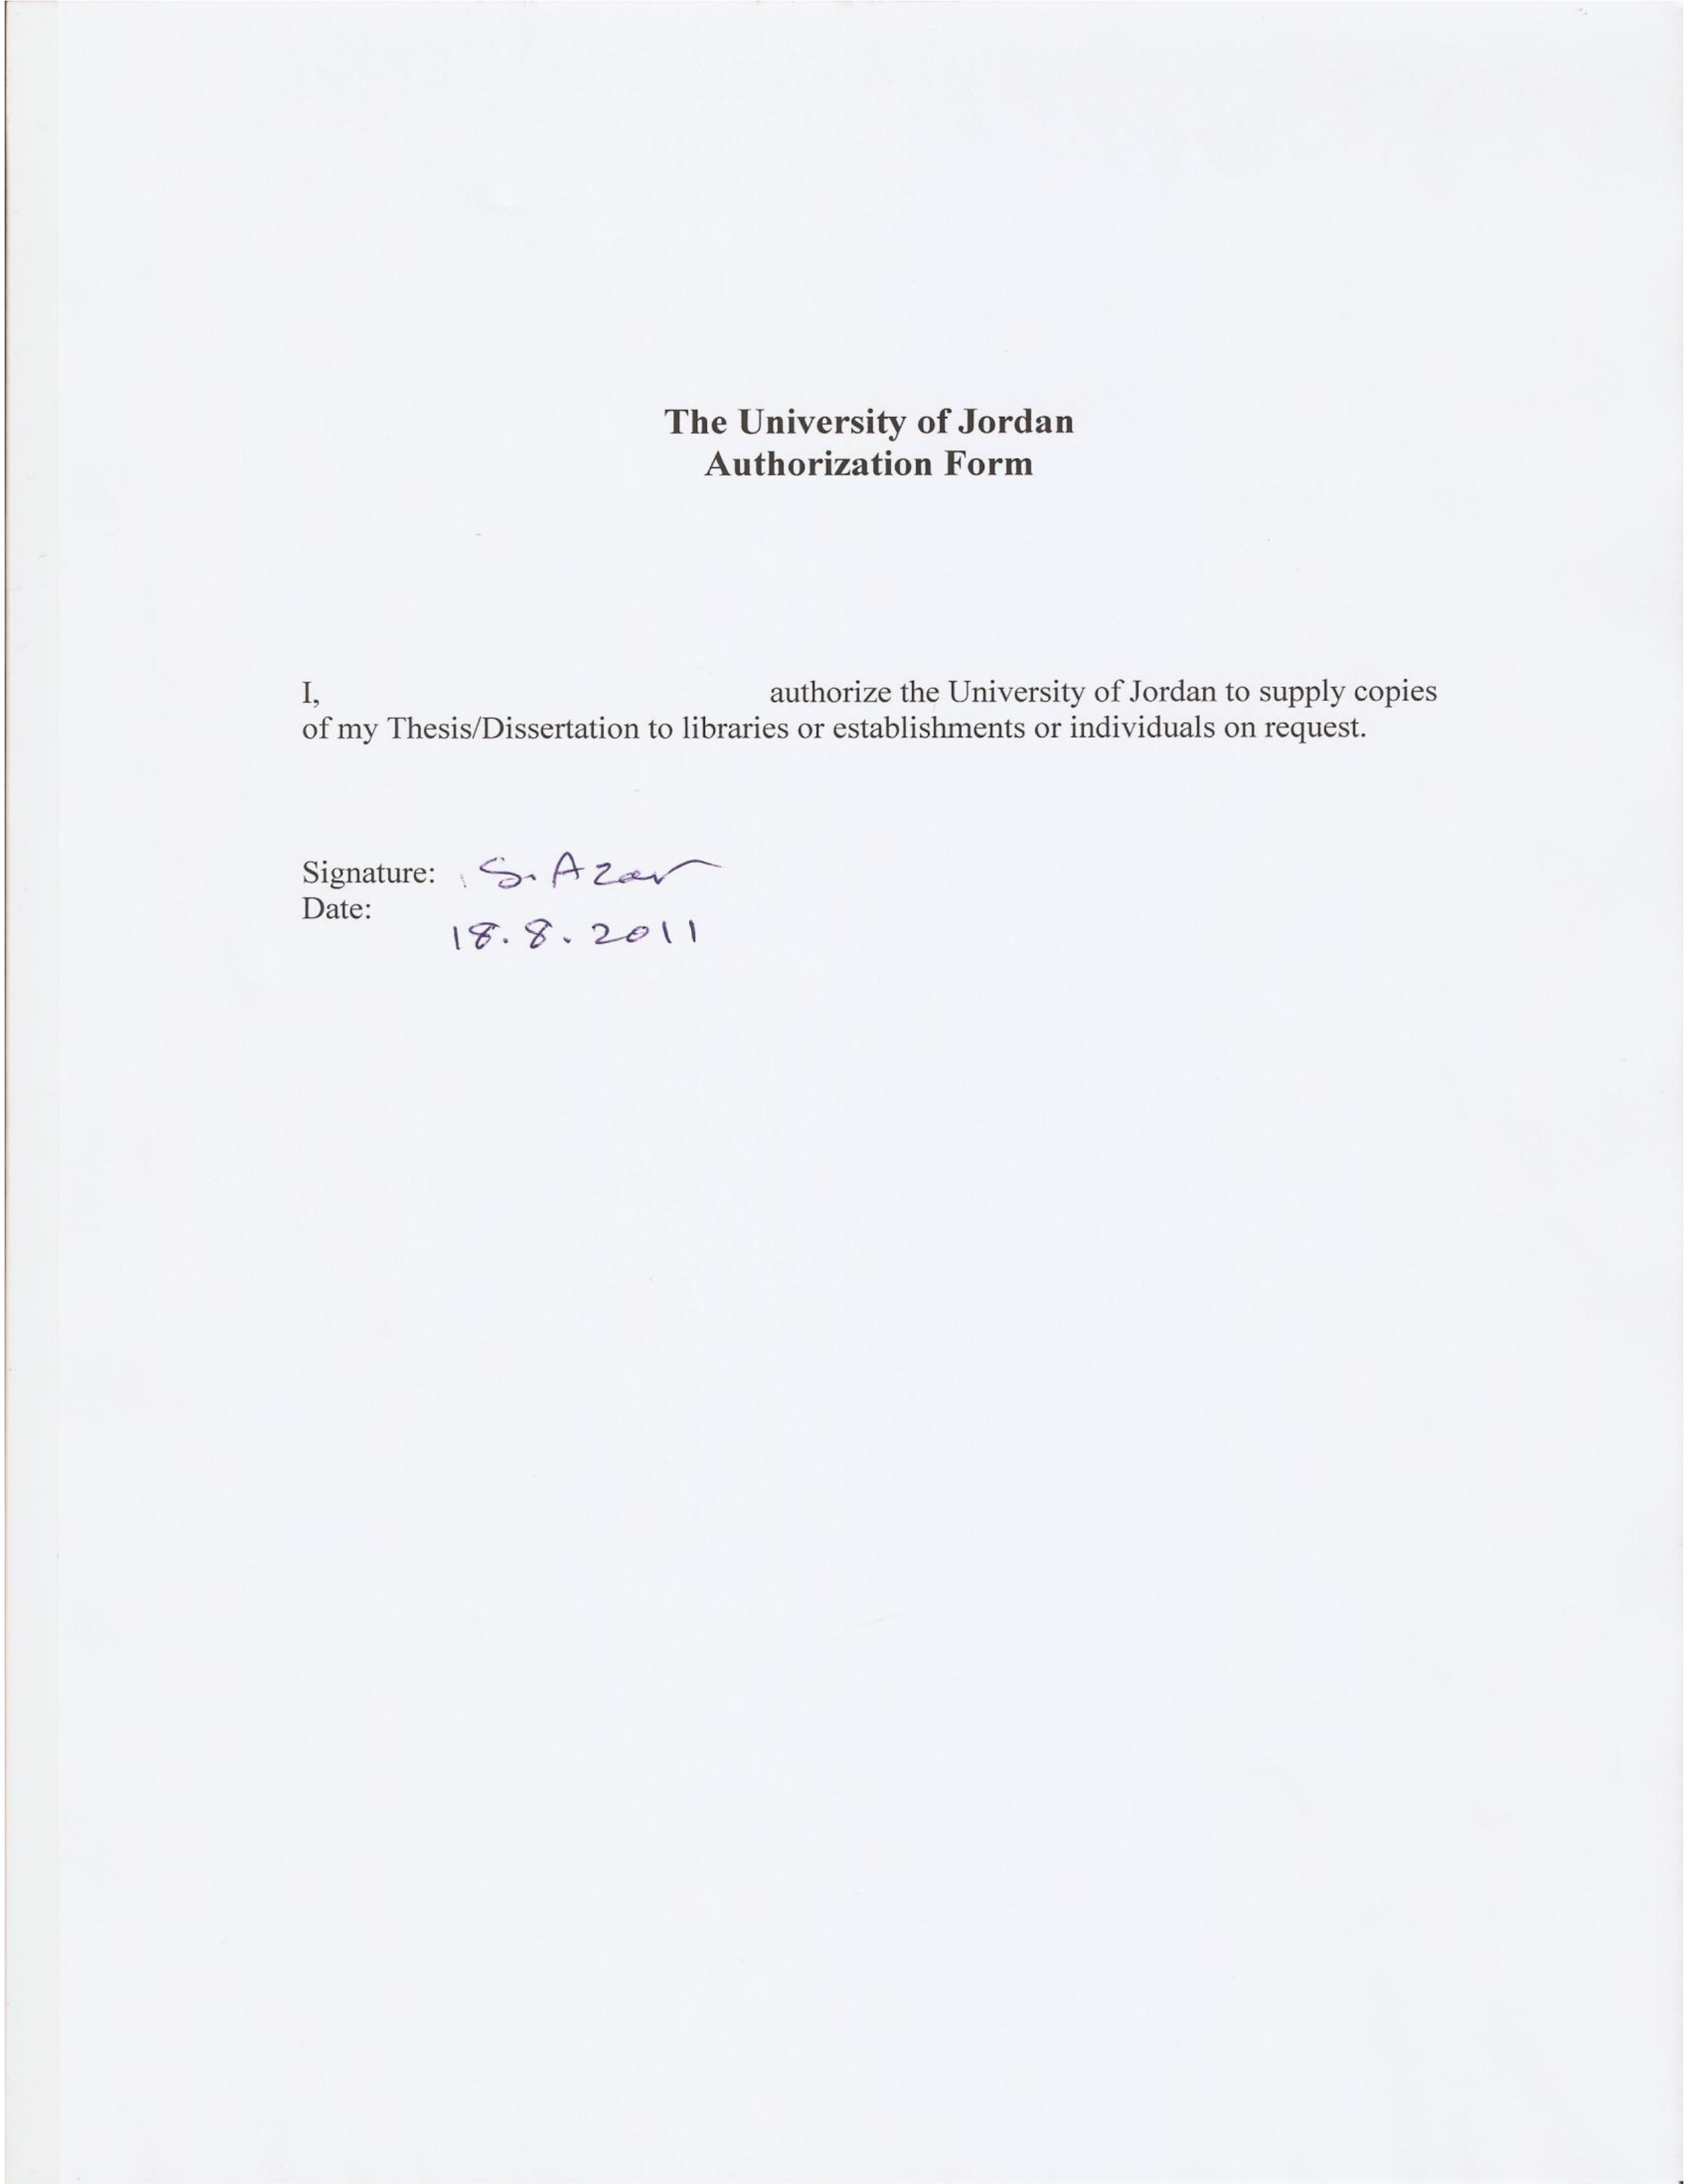 The University of Jordan
Authorization Form
I, authorize the University of Jordan to supply copies
of my Thesis/Dissertation to libraries or establishments or individuals on request.
Signature: S. Azar
Date:
18.8.2011